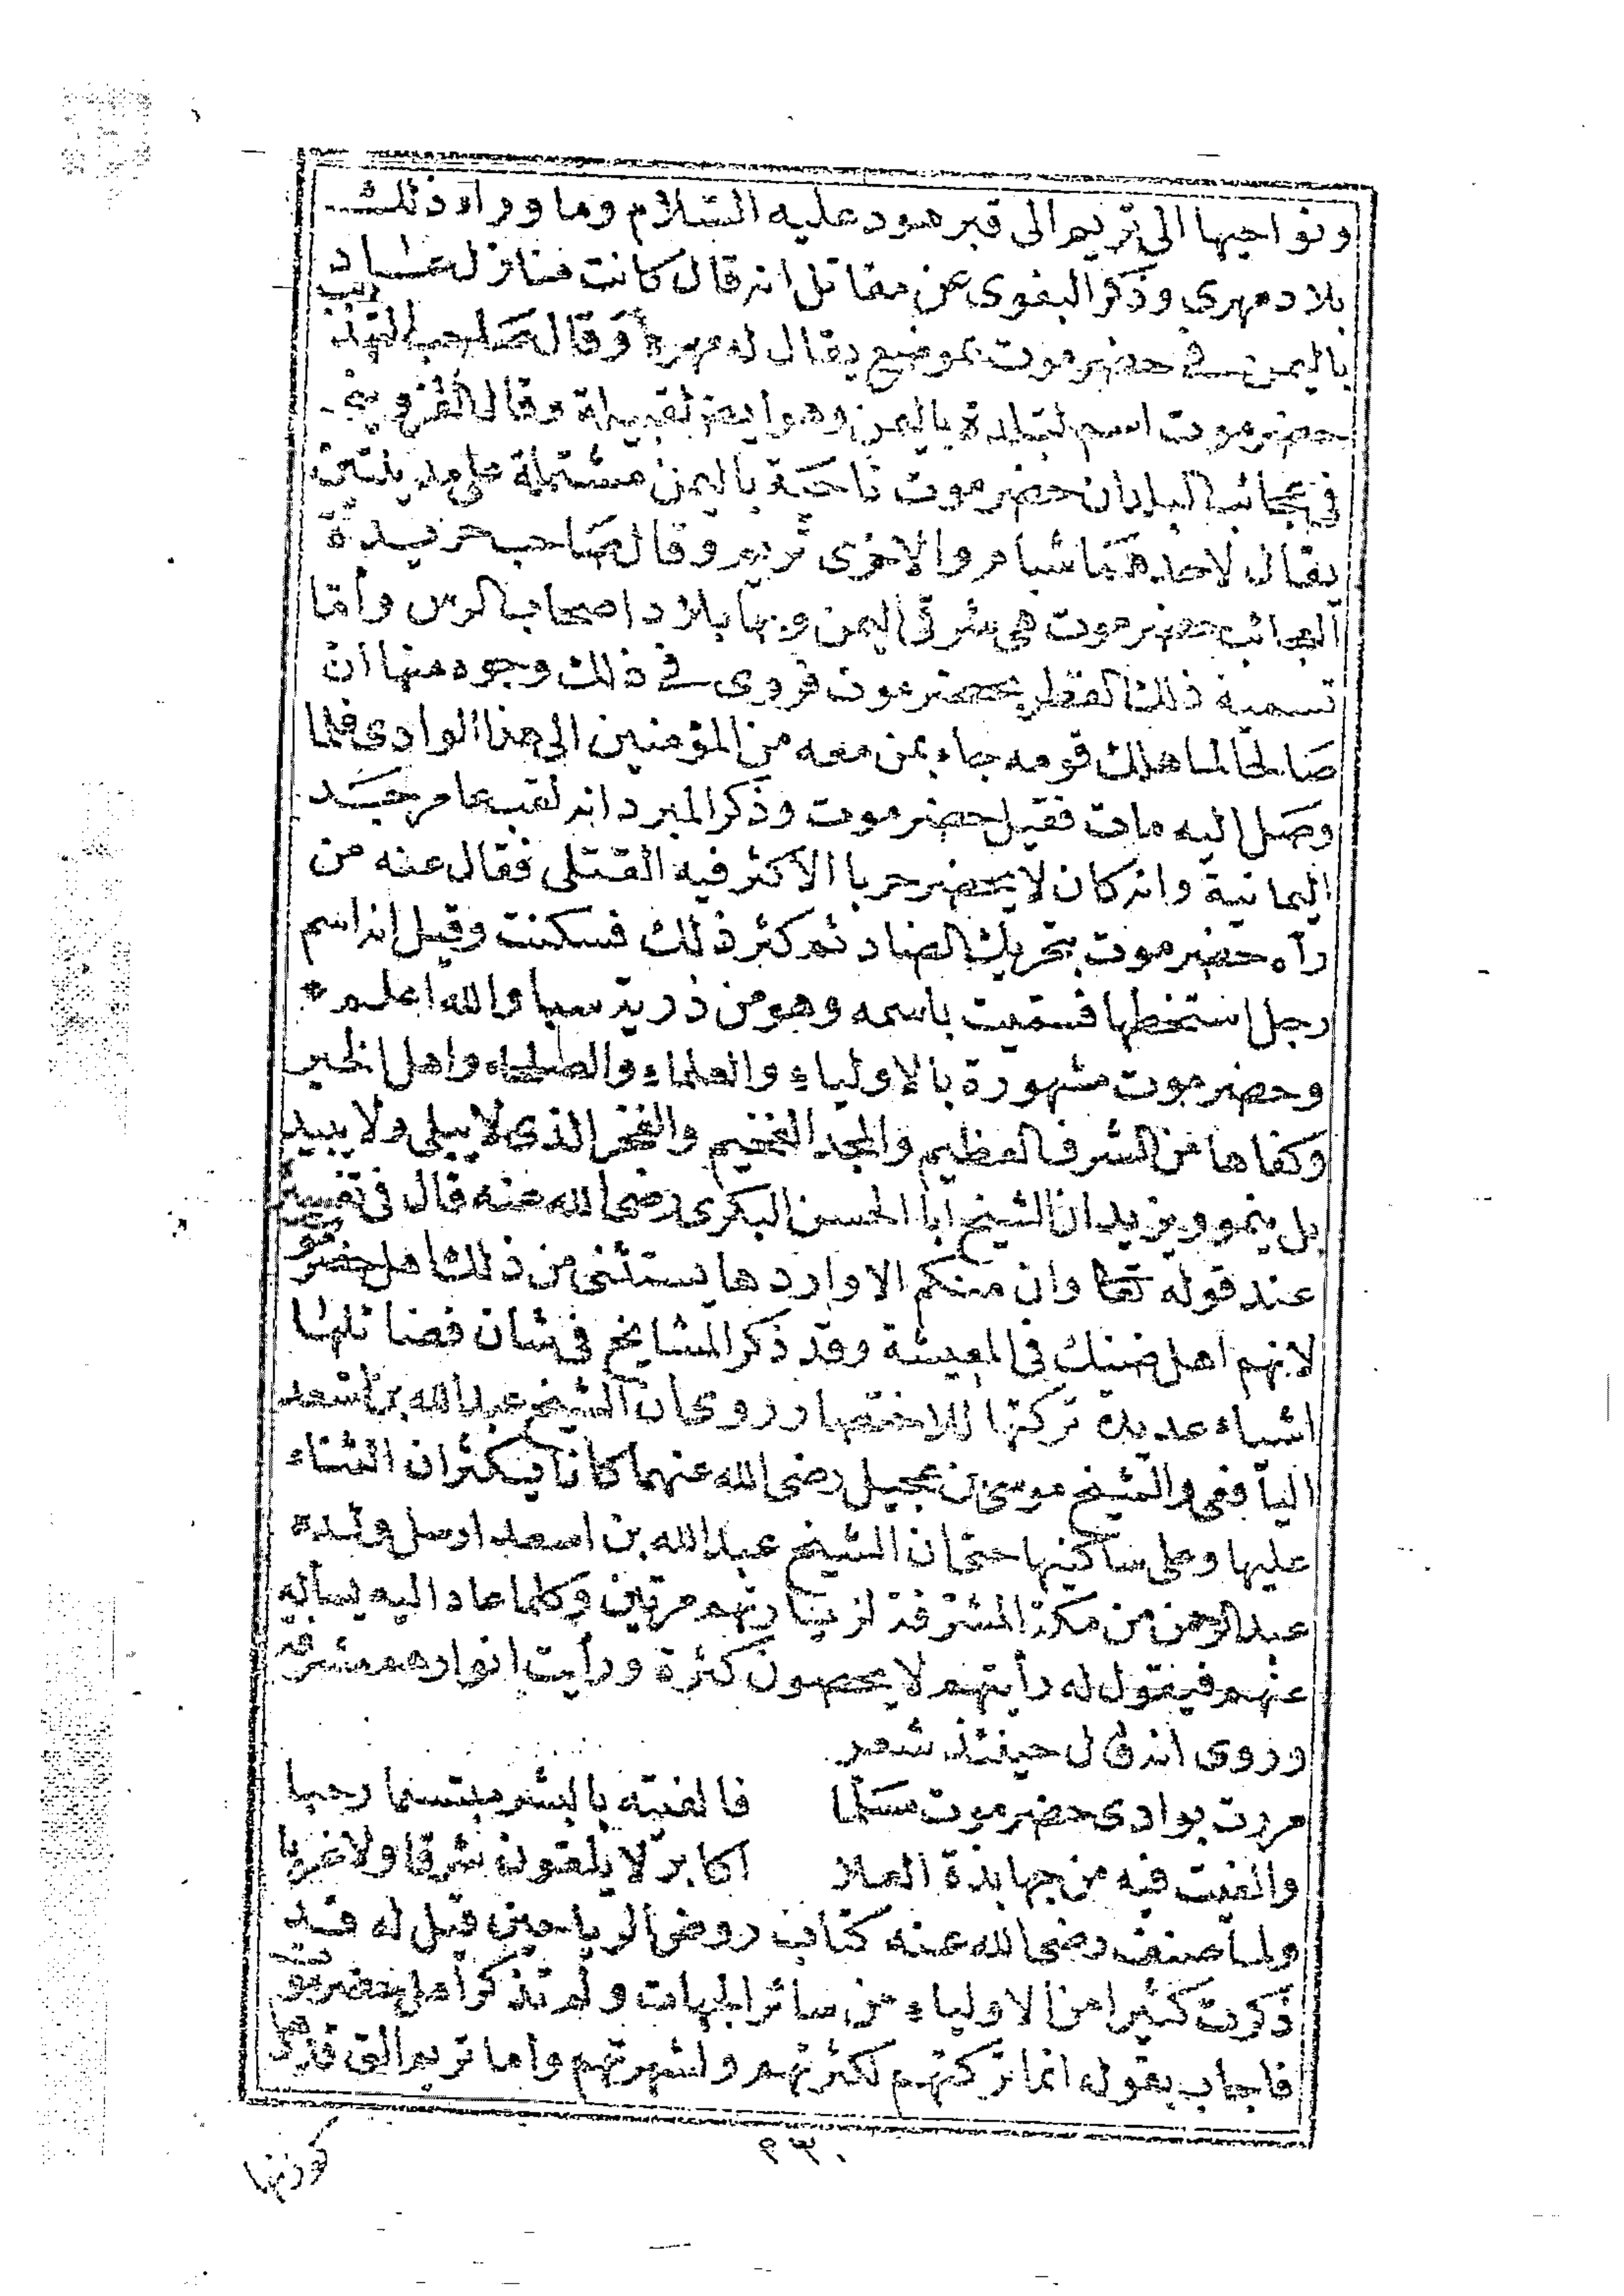 ونواحيها الى تريم الى قبر هود عليه السلام وما وراء ذلك
بلاد مهرى وذكر البغوى عن مقاتل انه قال كانت منازل عاد
باليمن فى حضرموت بموضع يقال له مهرة وقال صاحب التهذيب
حضرموت اسم لبلدة باليمن وهو ايضا لقبيلة وقال القزوينى
فى عجائب البلدان حضرموت ناحية باليمن مشتملة على مدينتين
يقال لاحدهما شبام والاخرى تريم وقال صاحب خريدة
العجائب حضرموت هى شرقى اليمن وبها بلاد اصحاب الرس وأما
تسمية ذلك القطر بحضرموت فروى فى ذلك وجوه منها ان
صالحا لما هلك قومه جاء بمن معه من المؤمنين الى هذا الوادى فلما
وصل اليه مات فقيل حضرموت وذكر المبرد انه لقب عامر جد
اليمانية وانه كان لا يحضر حربا الا كثر فيه القتلى فقال عنه من
رآه حضر موت بتحريك الضاد ثم كثر ذلك فسكنت وقيل انه اسم
رجل استخطها فسميت باسمه وهو من ذرية سبا والله اعلم *
وحضرموت مشهورة بالاولياء والعلماء والصلحاء واهل الخير
وكفاها من الشرف العظيم والمجد الفخيم والفخر الذى لا يبلى ولا يبيد
بل ينمو ويزيد ان الشيخ أبا الحسن البكرى رضى الله عنه قال فى تفسيره
عند قوله تعا وان منكم الا واردها يستثنى من ذلك اهل حضرموت
لانهم اهل ضنك فى المعيشة وقد ذكر المشايخ فى شان فضائلها
اشياء عديدة تركتها للاختصار روى ان الشيخ عبدالله بن اسعد
اليافعى والشيخ موسى بن عجيل رضى الله عنهما كانا يكثران الثناء
عليها وعلى ساكنيها حتى ان الشيخ عبدالله بن اسعد ارسل ولده
عبدالرحمن من مكة المشرفة لزيارتهم مرتين وكلما عاد اليه يسأله
عنهم فيقول له رأيتهم لا يحصون كثرة ورأيت انوارهم مشرقة
وروى انه قال حينئذ شعر
مررت بوادى حضرموت مسلما فالفيته بالبشر مبتسما رحبا
والفيت فيه من جهابذة العلا اكابر لا يلقون شرقا ولا غربا
ولما صنف رضى الله عنه كتاب روض الرياحين قيل له قد
ذكرت كثيرا من الاولياء من سائر الجهات ولم تذكر أهل حضرموت
فاجاب بقوله انما تركتهم لكثرتهم ولشهرتهم واما تريم التى